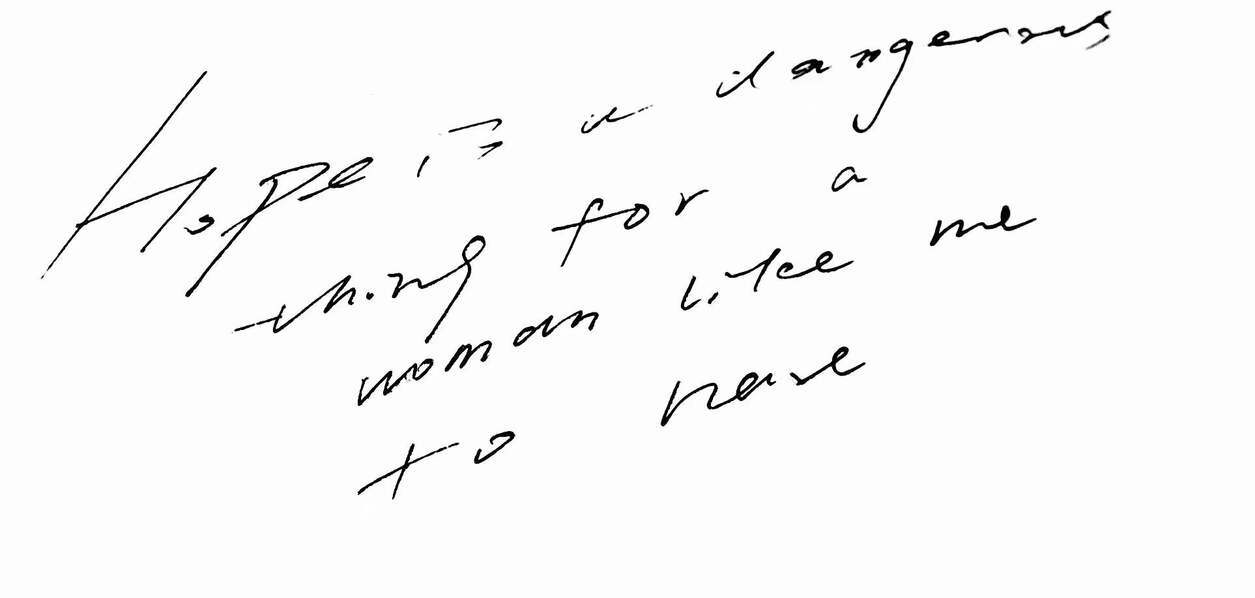 Hope is a dangerous
thing for a
woman like me
to have